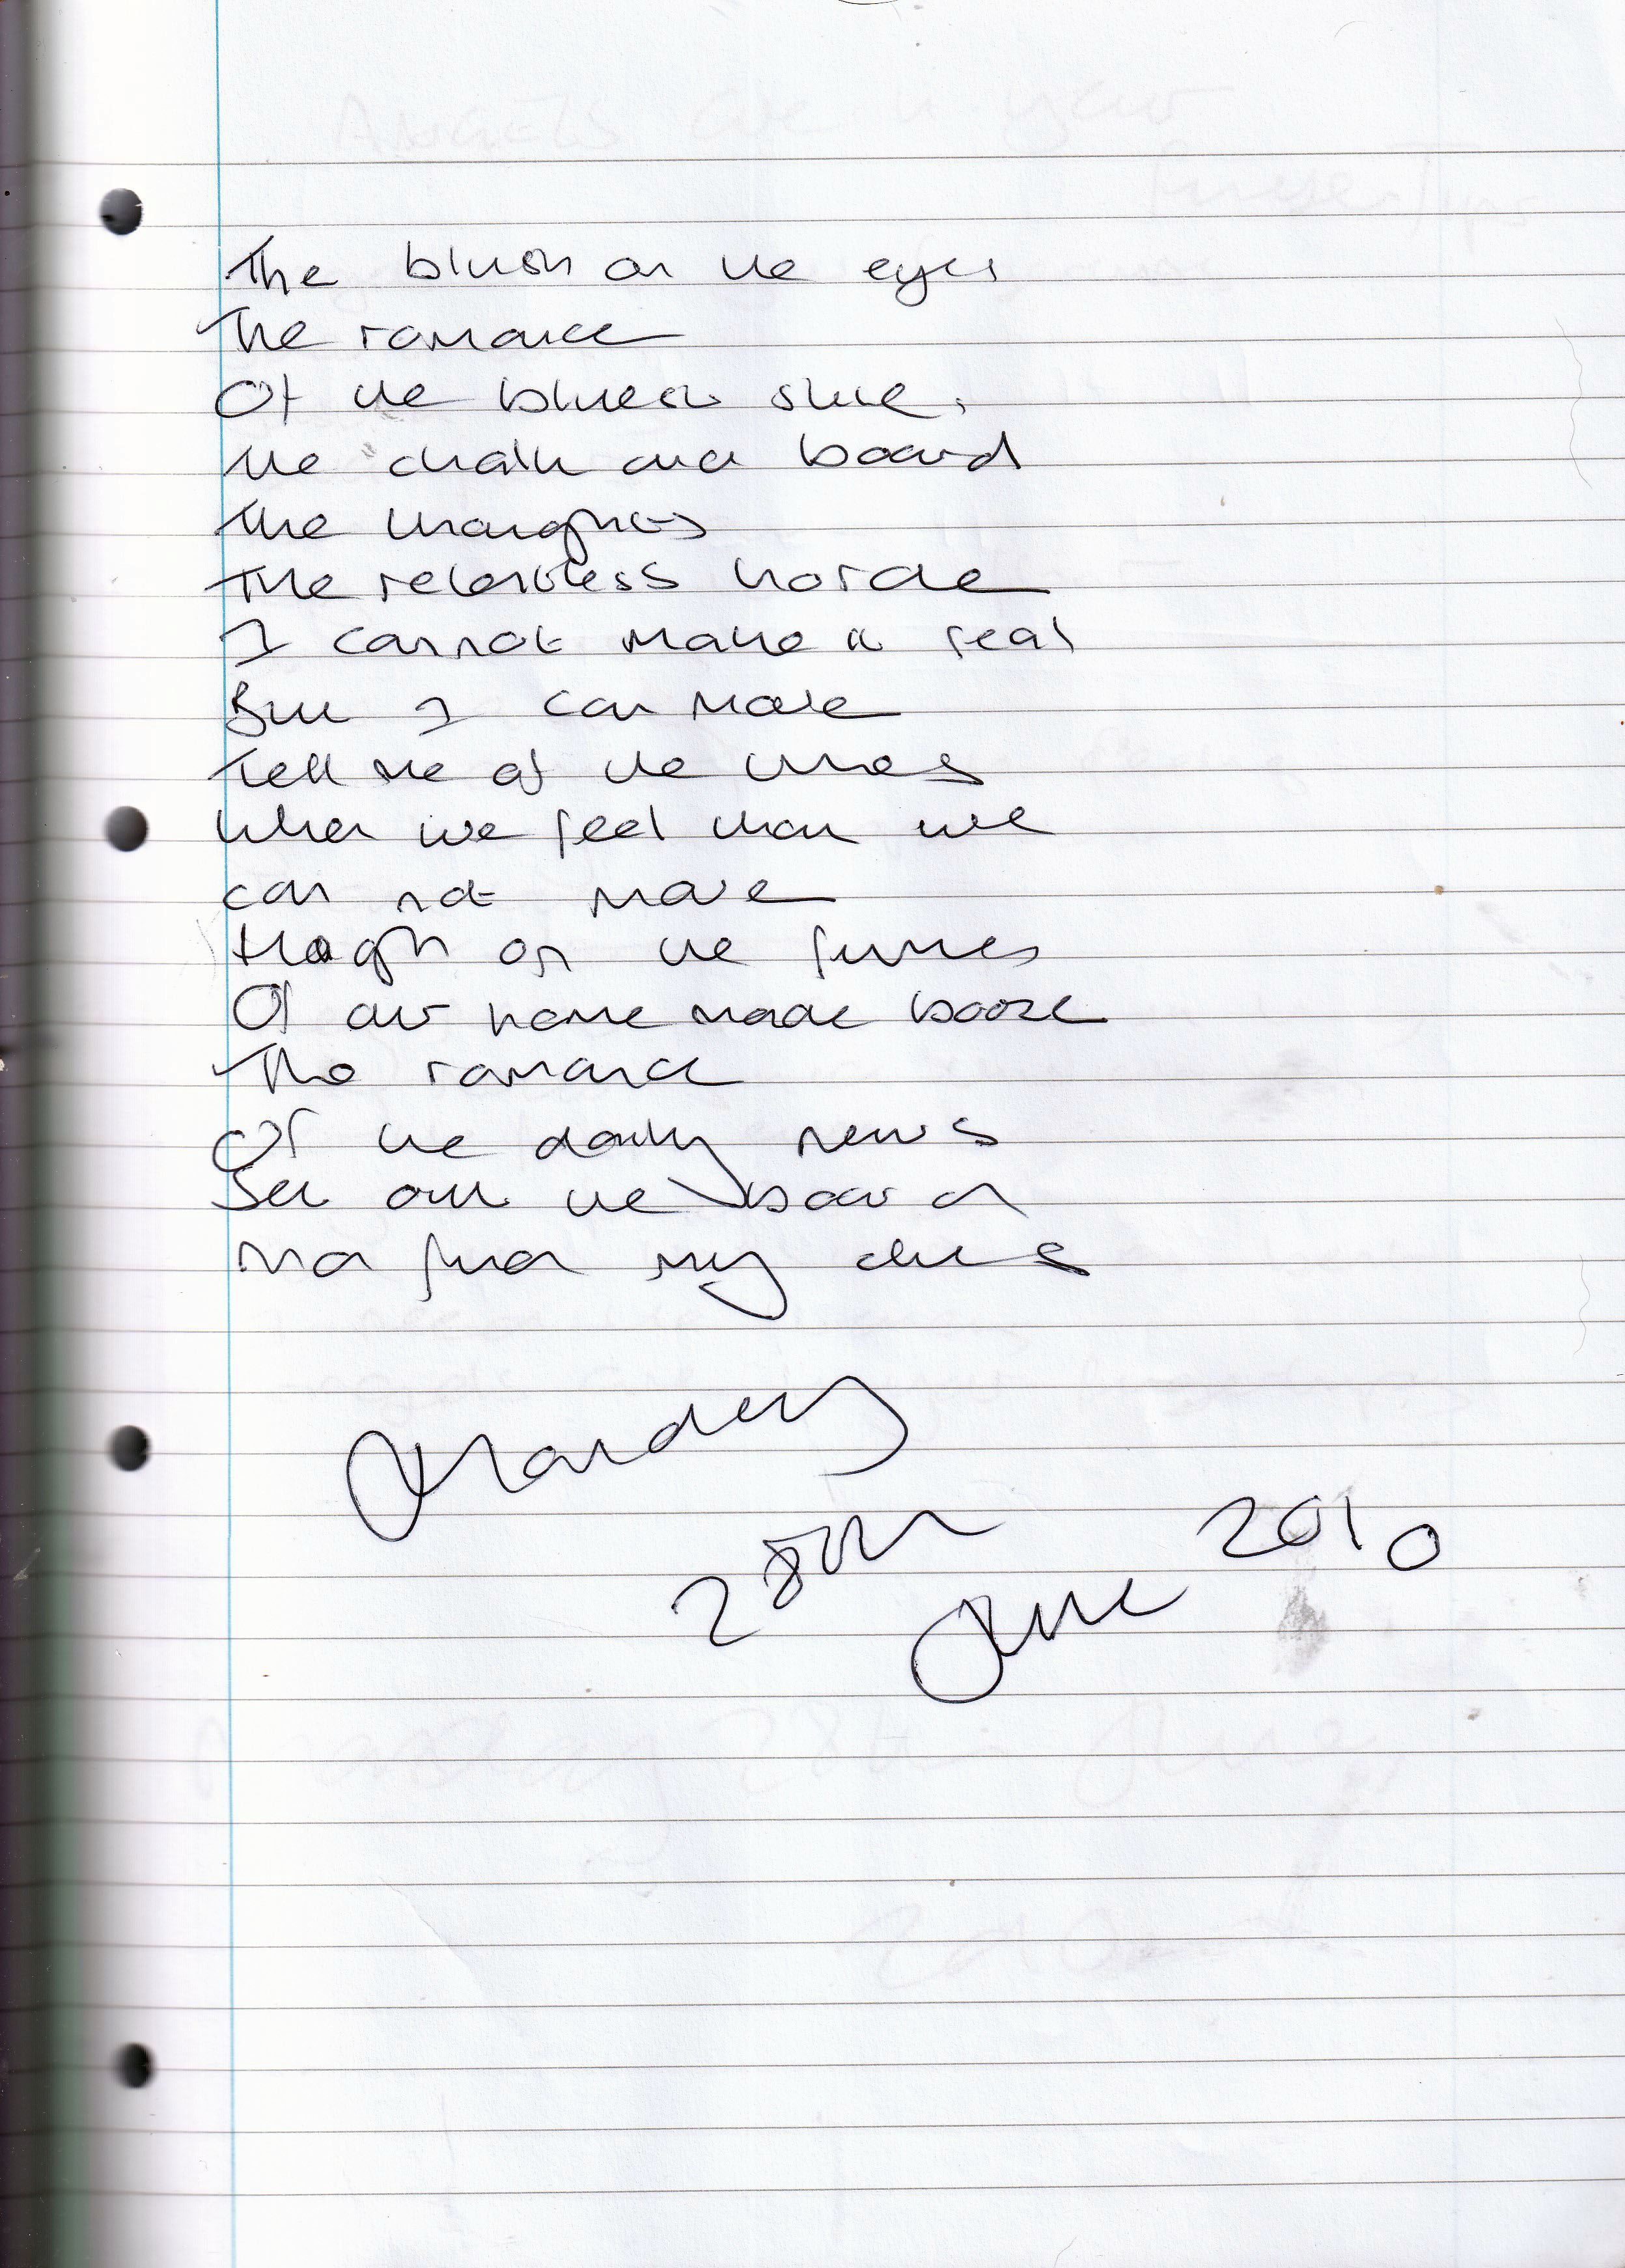 The blush on the eyes
The romance
Of the bluesh
The chalk and board
The thoughts
The relentless horde
I cannot make it real
But I can move
Tell me of the times
When we feel that we
can not move
High on the fumes
Of our home made booze
The romance
Of the daily news
Set out the board
And find my clues
Monday
28th
June 2010